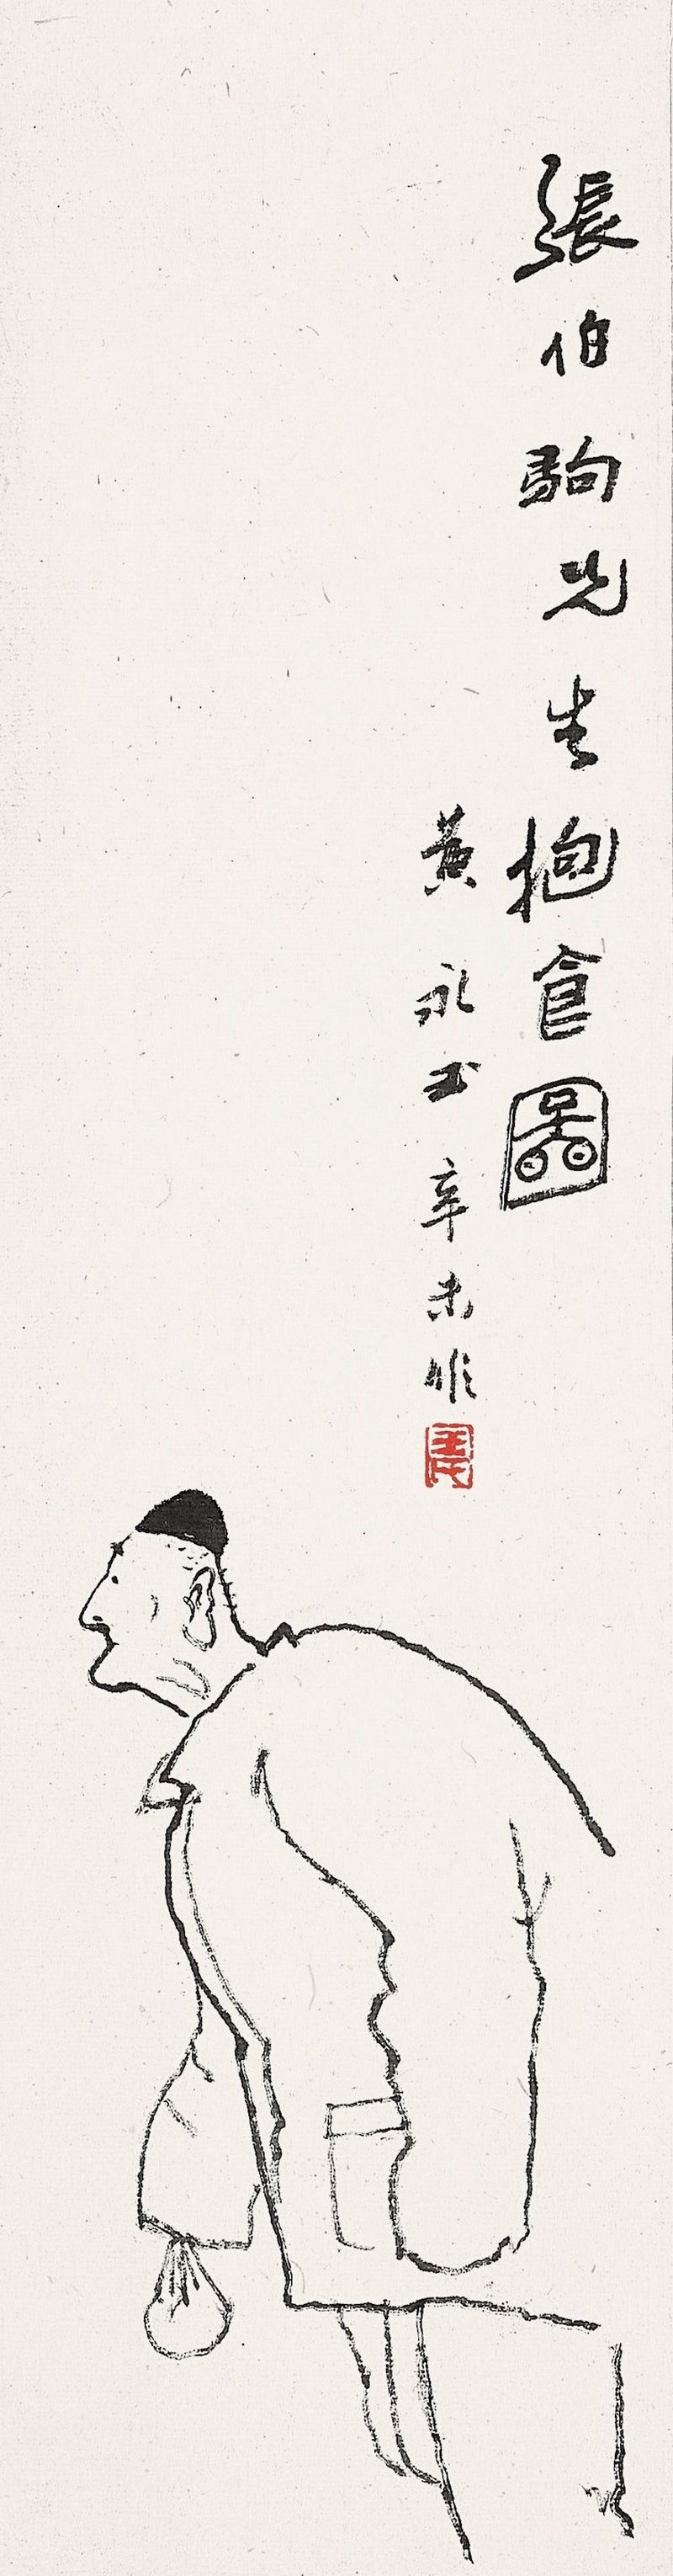 張伯駒先生抱食圖
黃永玉辛未作